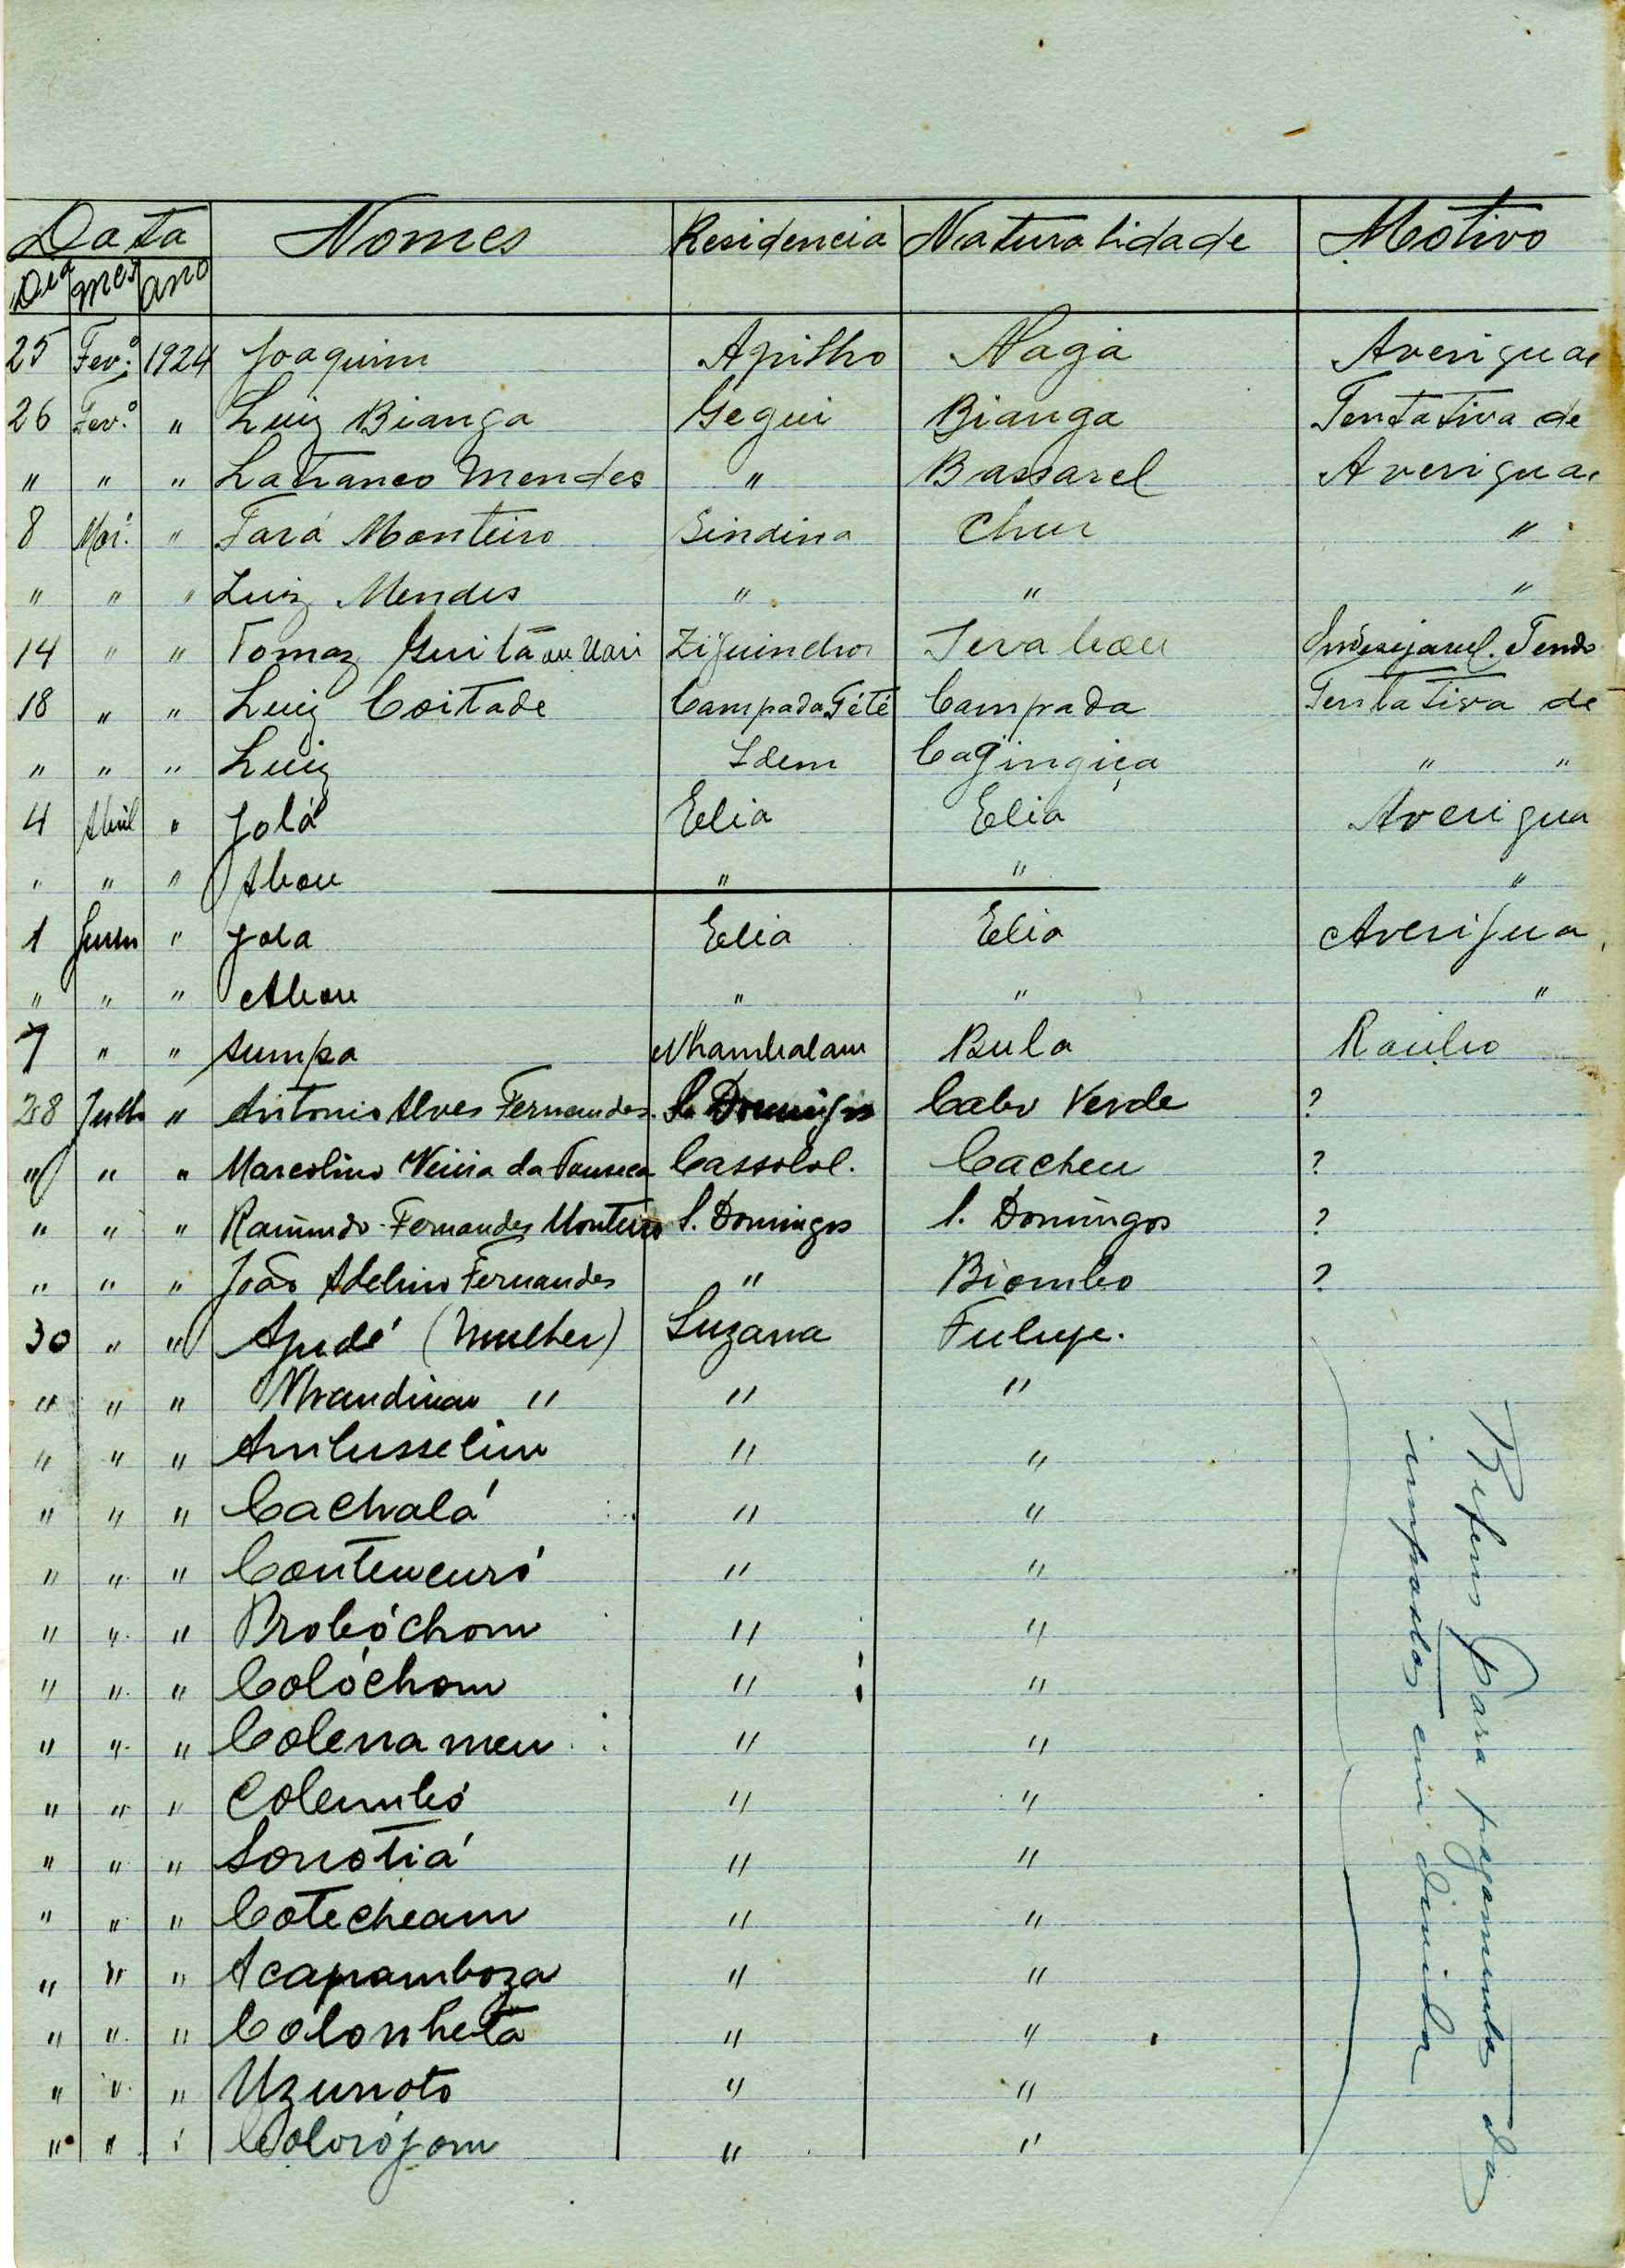 Data Nomes Residencia Naturalidade Motivo
Dia mes ano
25 Fev.º 1924 Joaquim Apilho Nagá Averigua
26 Fev.º " Luiz Bianga Gegui Bianga Tentativa de
" " " Lafranco Mendes " Bassarel Averigua
8 Mar. " Tará Monteiro Sindina Chur "
" " " Luiz Mendes " " "
14 " " Tomaz ou Uari Ziguinchor Indesejavel. Tendo
18 " " Luiz Coitade Campada Tété Campada Tentativa de
" " " Luiz Idem Cagingiça " "
4 Abril " Jolá Elia Elia Averigua
" " " Abou " " "
1 Junh " Jola Elia Elia Averigua
" " " Abou " " "
7 " " Sumpa Nhambalam Bula Roubo
28 Julh " Antonio Alves Fernandes S. Domingos Cabo Verde ?
" " " Marcolino Vieira da Fonseca Cassolol. Cacheu ?
" " " Raimundo Fernandes Monteiro S. Domingos S. Domingos ?
" " " João Adelino Fernandes " Biombo ?
30 " " Apudé (Mulher) Suzana Fulupe.
" " " Nhandinau " " "
" " " Ambusselim " "
" " " Cachalá " "
" " " Conteweuró " "
" " " Brobóchom " "
" " " Colóchom " "
" " " Colenameu " "
" " " Colembó " "
" " " Sonotiá " "
" " " Cotecheam " "
" " " Acapamboza " "
" " " Colonheta " "
" " " Uzunoto " "
" " " Colorójom " "
Refens para pagamento do
impostos em divida